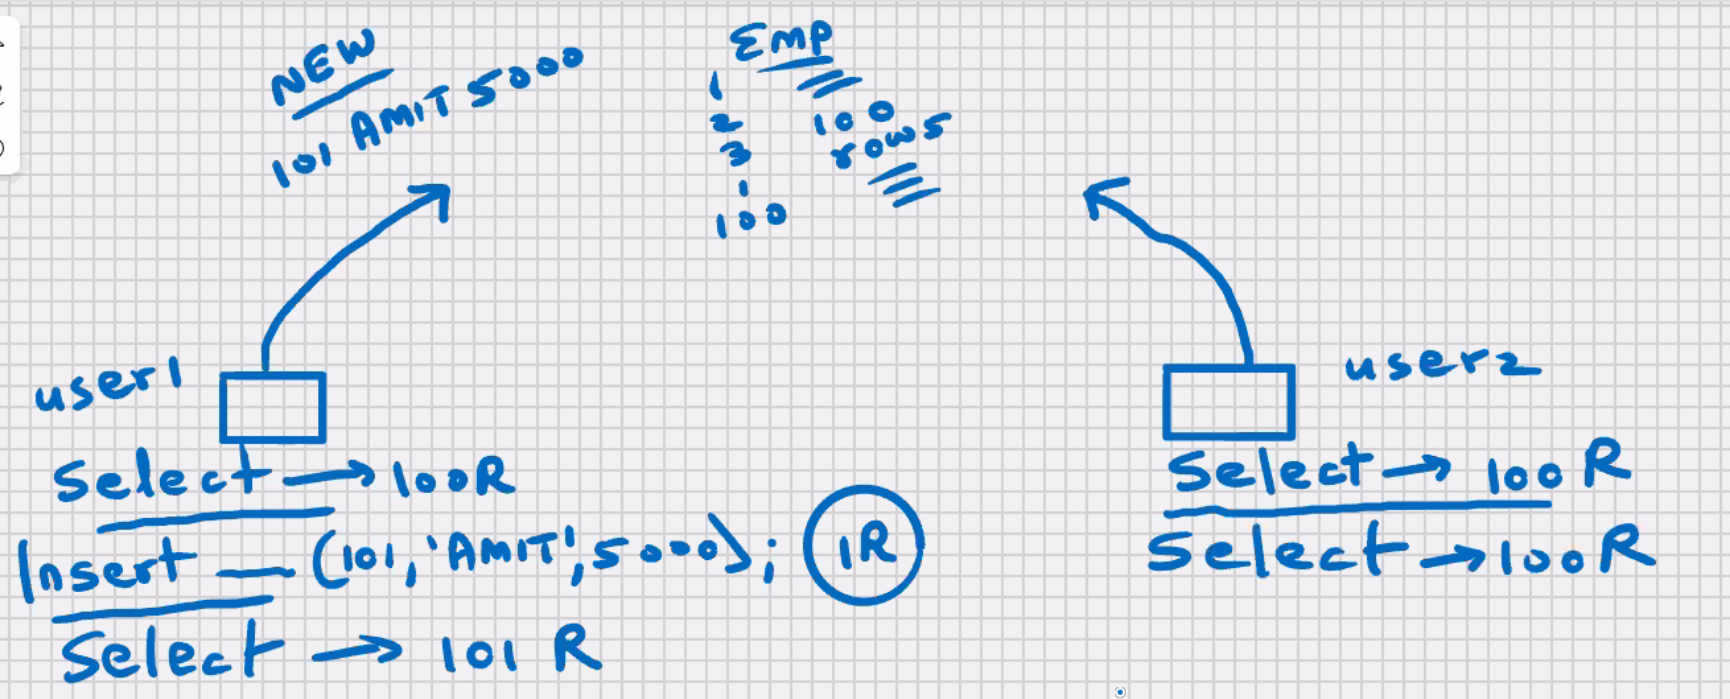 NEW
101 AMIT 5000
Emp
1
2
3
1
100
100
rows
user1
Select → 100R
Insert — (101, 'AMIT', 5000); 1R
Select → 101 R
user2
Select → 100 R
Select → 100 R